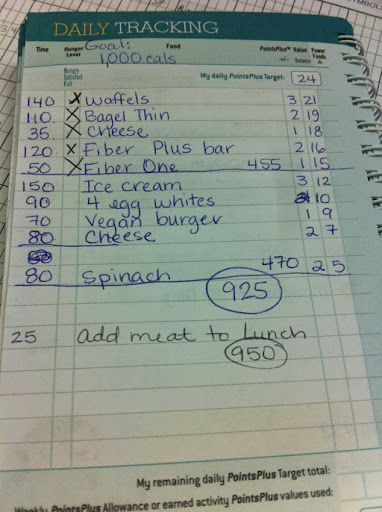 DAILY TRACKING
Time Hunger Level Goal: Food PointsPlus™ Value Power Foods
1,000 cals +/- Balance
Hungry
Satisfied
Full
My daily PointsPlus Target: 24
140 X Waffels 3 21
110 X Bagel Thin 2 19
35 X Cheese 1 18
120 X Fiber Plus bar 2 16
50 X Fiber One 455 1 15
150 Ice cream 3 12
90 4 egg whites 10
70 Vegan burger 1 9
80 Cheese 2 7
80 Spinach 470 2 5
925
25 add meat to Lunch
950
My remaining daily PointsPlus Target total:
Weekly PointsPlus Allowance or earned activity PointsPlus values used: